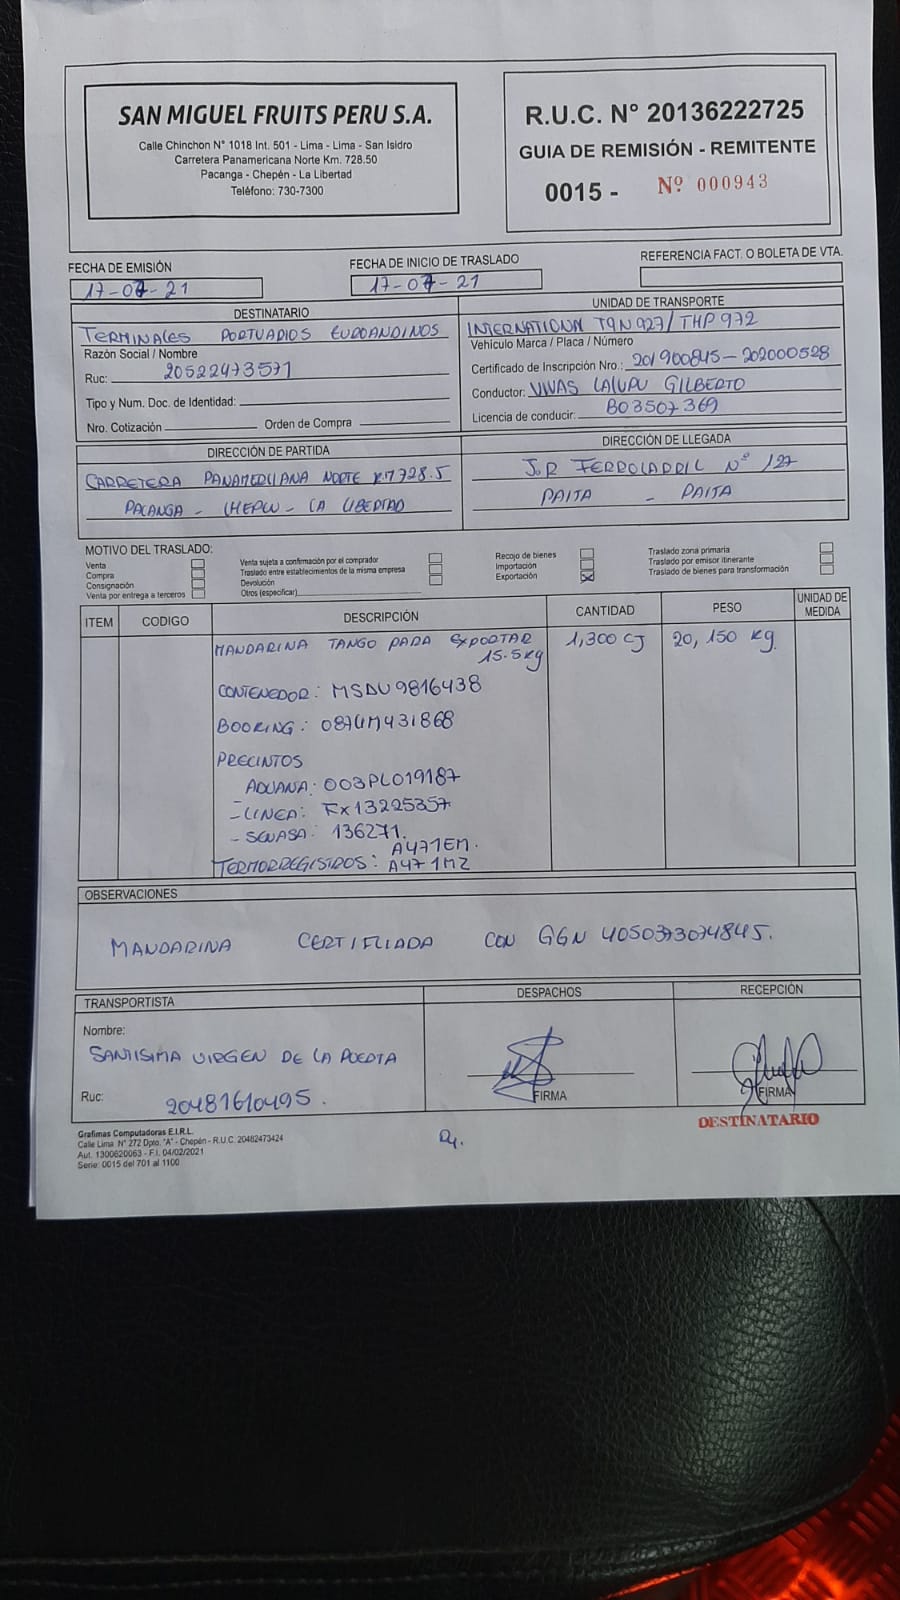 SAN MIGUEL FRUITS PERU S.A.
Calle Chinchon N° 1018 Int. 501 - Lima - Lima - San Isidro
Carretera Panamericana Norte Km. 728.50
Pacanga - Chepén - La Libertad
Teléfono: 730-7300
R.U.C. N° 20136222725
GUIA DE REMISIÓN - REMITENTE
0015 - Nº 000943
FECHA DE EMISIÓN
17-07-21
FECHA DE INICIO DE TRASLADO
17-07-21
REFERENCIA FACT. O BOLETA DE VTA.
DESTINATARIO
TERMINALES PORTUARIOS EUROANDINOS
Razón Social / Nombre
Ruc: 20522473571
Tipo y Num. Doc. de Identidad:
Nro. Cotización Orden de Compra
UNIDAD DE TRANSPORTE
INTERNATIONAL T9N927/ THP 972
Vehículo Marca / Placa / Número
Certificado de Inscripción Nro.: 201900845-202000528
Conductor: VIVAS LALUPU GILBERTO
Licencia de conducir: B03507369
DIRECCIÓN DE PARTIDA
CARRETERA PANAMERICANA NORTE KM728.5
PACANGA - CHEPEN - LA LIBERTAD
DIRECCIÓN DE LLEGADA
J.R FERROCARRIL Nº 127
PAITA - PAITA
MOTIVO DEL TRASLADO:
Venta
Compra
Consignación
Venta por entrega a terceros
Venta sujeta a confirmación por el comprador
Traslado entre establecimientos de la misma empresa
Devolución
Otros (especificar)
Recojo de bienes
Importación
Exportación X
Traslado zona primaria
Traslado por emisor itinerante
Traslado de bienes para transformación
ITEM CODIGO DESCRIPCIÓN CANTIDAD PESO UNIDAD DE MEDIDA
MANDARINA TANGO PARA EXPORTAR 1,300 CJ 20,150 Kg.
15.5Kg
CONTENEDOR: MSDU9816438
BOOKING: 087LIM431868
PRECINTOS
ADUANA: 003PL019187
-LINEA: Fx13225357
-SENASA: 136271.
A471EM.
TERMORREGISTROS: A471MZ
OBSERVACIONES
MANDARINA CERTIFICADA CON GGN 4050373074845.
TRANSPORTISTA
Nombre:
SANTISIMA VIRGEN DE LA PUERTA
Ruc: 20481610495.
DESPACHOS
FIRMA
RECEPCIÓN
FIRMA
DESTINATARIO
Grafimas Computadoras E.I.R.L.
Calle Lima N° 272 Dpto. "A" - Chepén - R.U.C. 20482473424
Aut. 1300620063 - F.I. 04/02/2021
Serie: 0015 del 701 al 1100